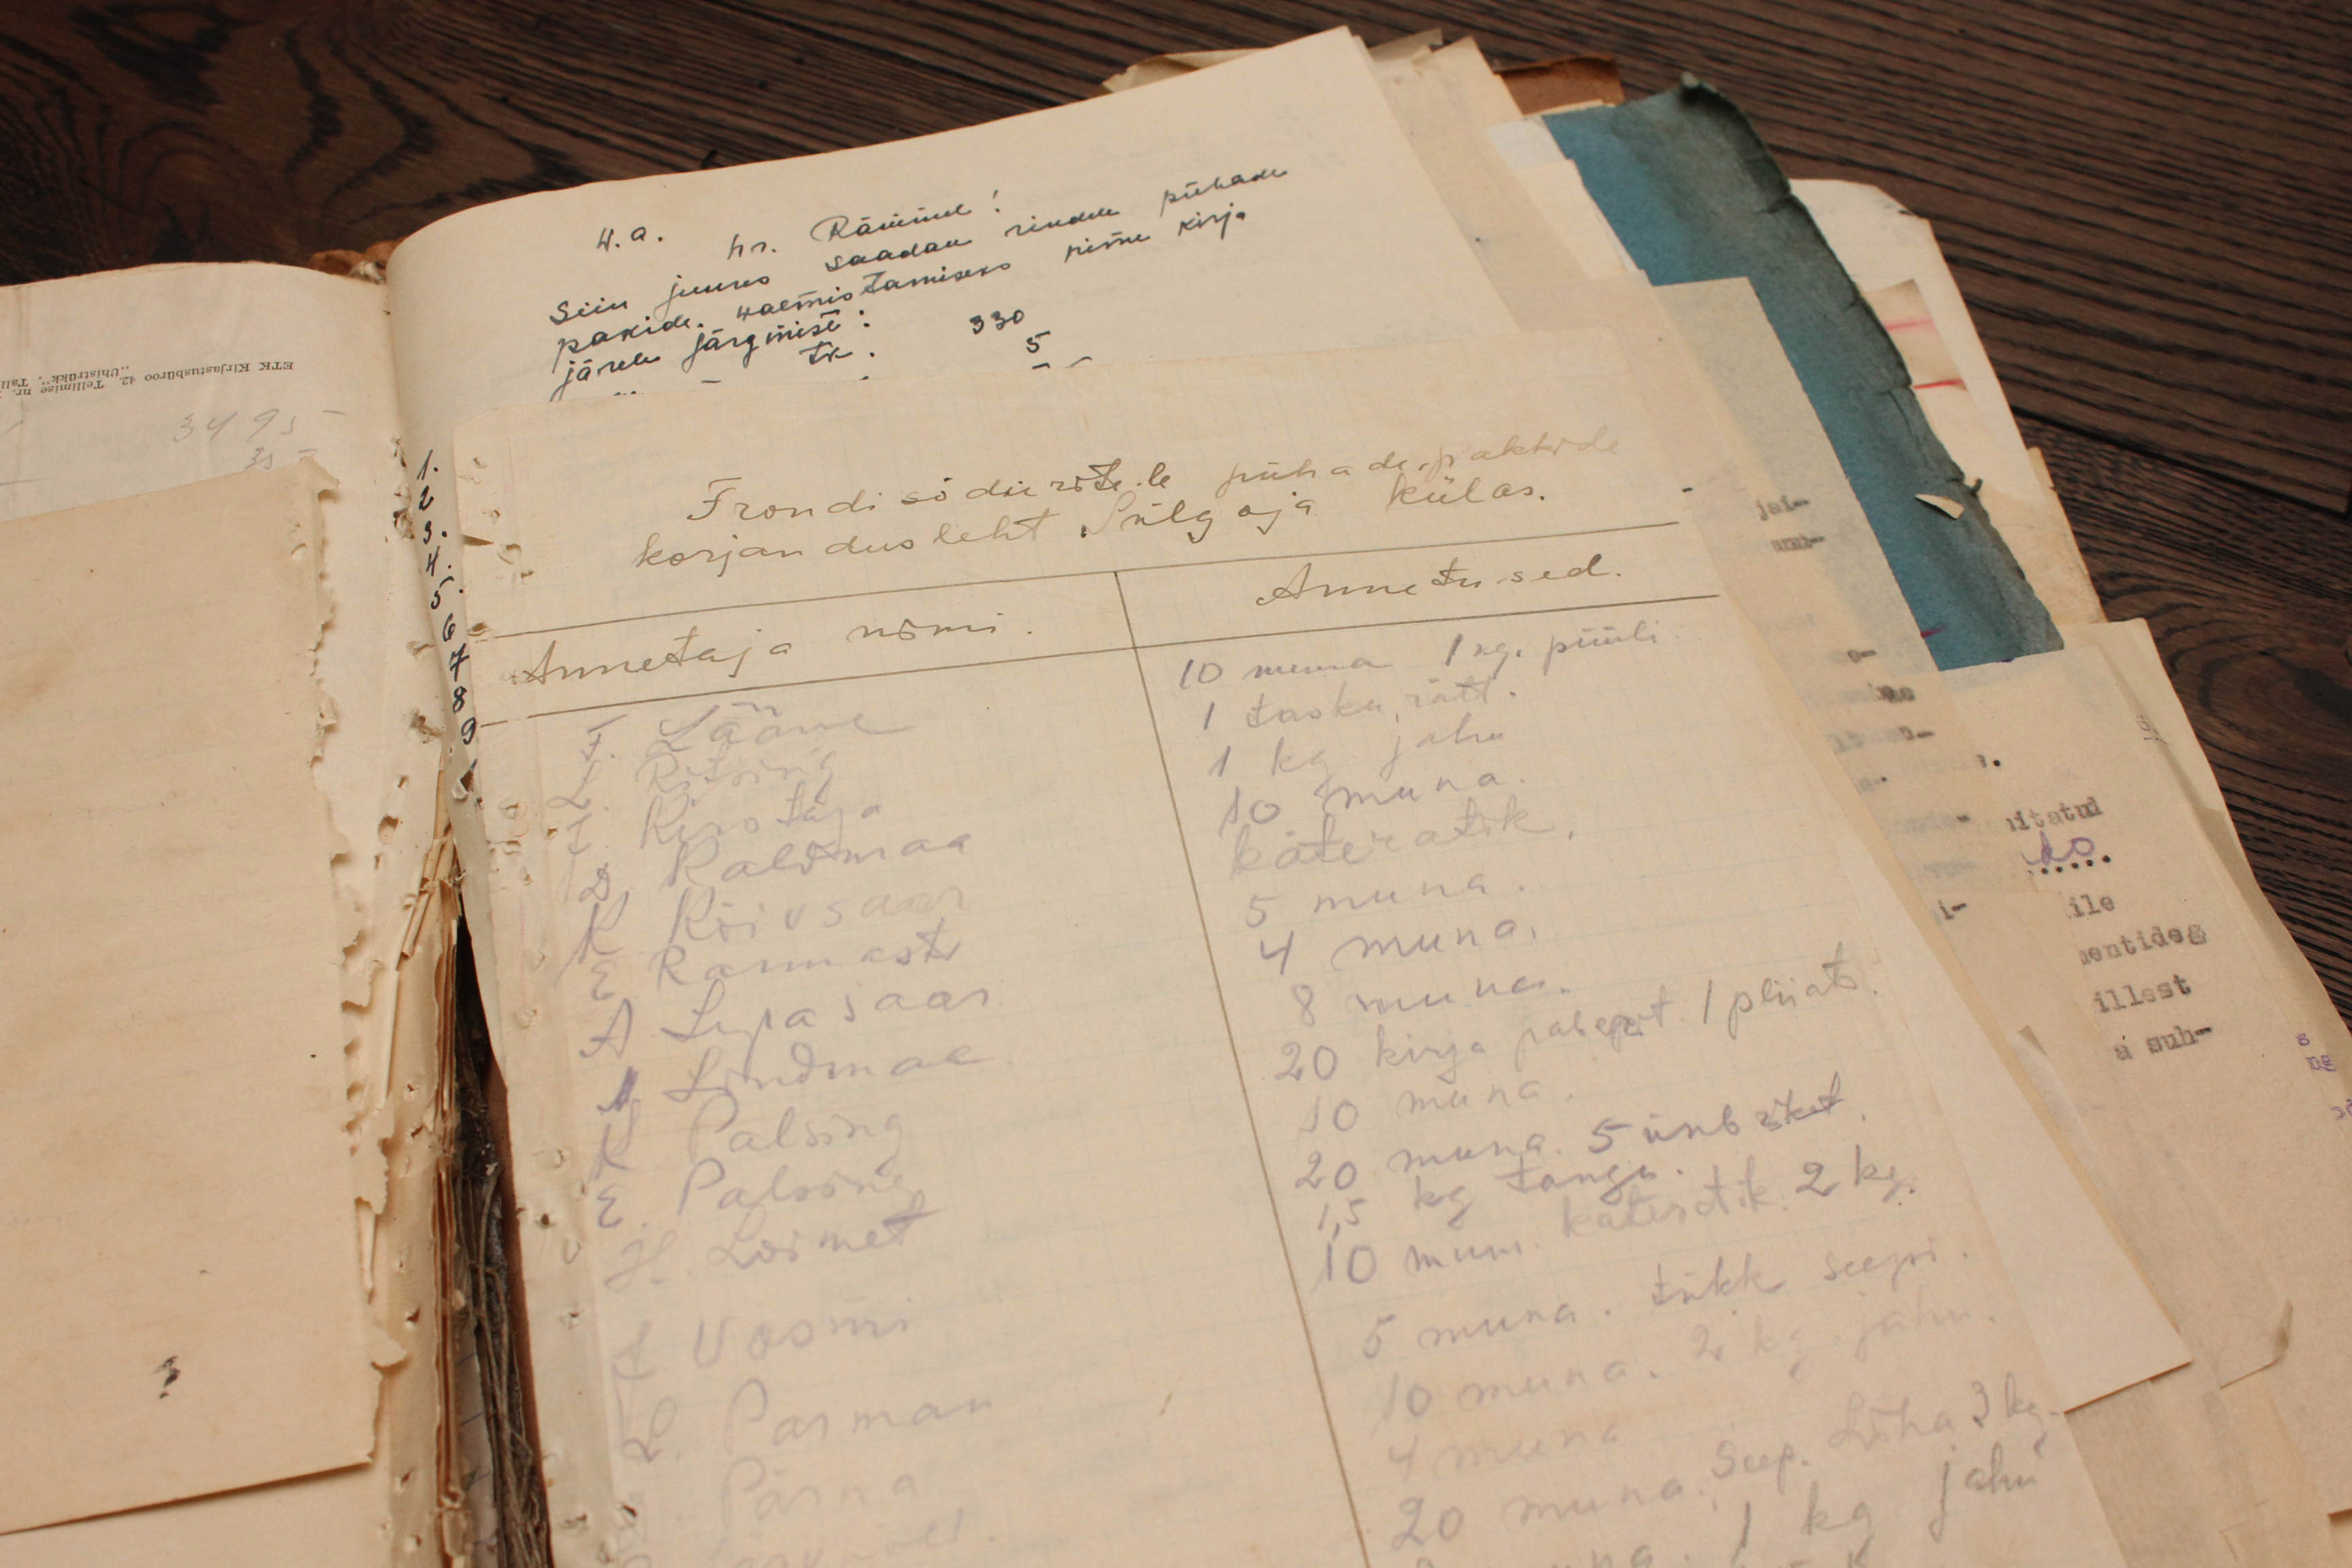 ETK Kirjastusbüroo
Tellimise nr. 42. „Ühistrükk“, Tall
3495
35
W. a. hr. Rämmel!
Siin juures saadan rindele pühade
pakide. walmistamiseks nimekirja
järele järgmist:
tk. 330
5
1.
2
3.
4.
5.
6
7
8
9
Frondi sõduritele pühade pakkide
korjandusleht Sülgoja külas.
Annetaja nimi.
Annetused.
F. Lääne
10 muna 1 kg. püüli
L. Ritsing
1 tasku rätt.
1 kg jahu
D. Kaldmaa
10 muna.
K Kõivsaar
käterätik.
E Rannast
5 muna.
A Lepasaar
4 muna.
Lindmae
8 muna.
K Palsing
20 kirja paberit. 1 pliiats.
E. Palsing
10 muna.
H. Loimet
20 muna. 5 ümbrikut.
1,5 kg tangu.
10 muna. käterätik. 2 kg.
Voomi
5 muna. tükk seepi.
L. Parman
10 muna. 2 kg jahu.
Pärna
4 muna
20 muna. Seep. Liha 3 kg.
1 kg jahu
jal-
nitatud
ile
mentideg
illest
a suh-